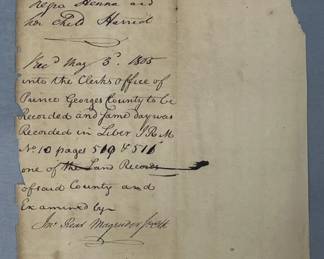 Negro Henna and
her Child Harriot
Rec'd May 3d. 1805
into the Clerks Office of
Prince Georges County to be
Recorded and same day was
Recorded in Liber J R M
No 10 pages 510 & 511
one of the Land Records
of said County and
Examined by
Jno: Read Magruder